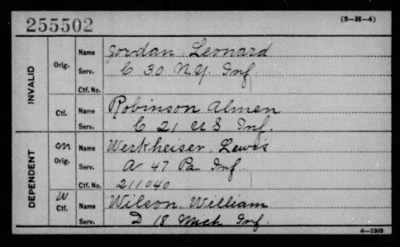 255502
(3-H-4)
INVALID
Orig.
Name Jordan Leonard
Serv. C 30 N.Y. Inf.
Ctf. No.
Ctf.
Name Robinson Almen
Serv. C 21 U S Inf.
DEPENDENT
on
Orig.
Name Werkheiser Lewis
Serv. A 47 Pa Inf
Ctf. No. 211040
W
Ctf.
Name Wilson William
Serv. D 18 Mich Inf.